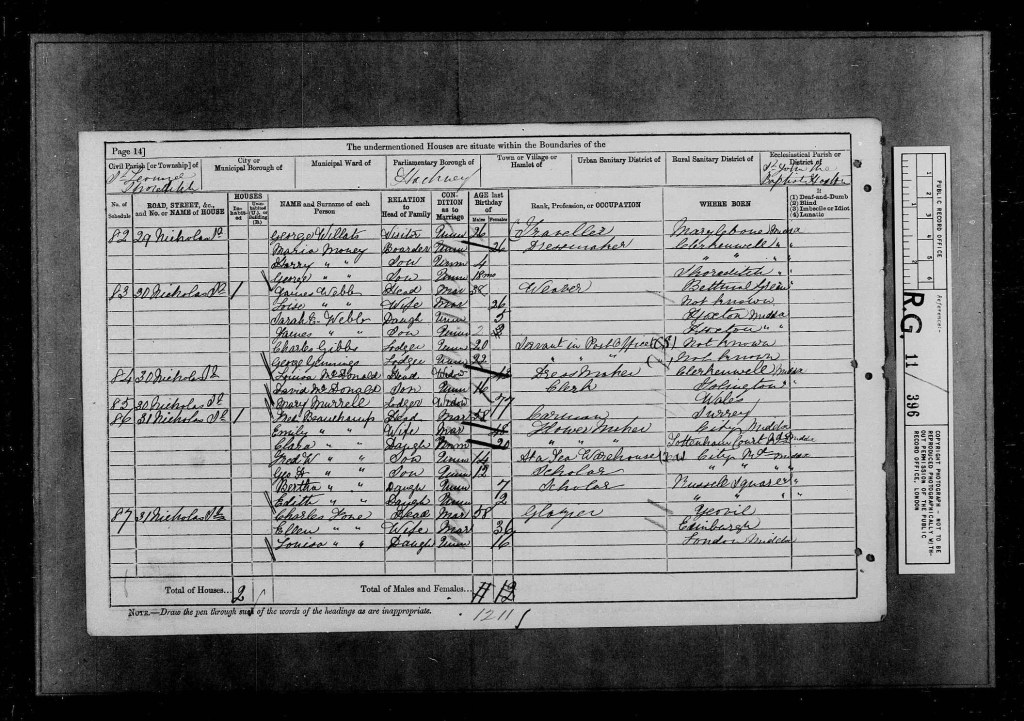 The undermentioned Houses are situate within the Boundaries of the
Page 14]
Civil Parish [or Township] of
City or Municipal Borough of
Municipal Ward of
Parliamentary Borough of
Town or Village or Hamlet of
Urban Sanitary District of
Rural Sanitary District of
Ecclesiastical Parish or District of
St Leonard Shoreditch
Hackney
St John the Baptist Hoxton
No. of Schedule
ROAD, STREET, &c., and No. or NAME of HOUSE
HOUSES
Inhabited
Uninhabited (U.), or Building (B.)
NAME and Surname of each Person
RELATION to Head of Family
CONDITION as to Marriage
AGE last Birthday of
Males
Females
Rank, Profession, or OCCUPATION
WHERE BORN
If
(1) Deaf-and-Dumb
(2) Blind
(3) Imbecile or Idiot
(4) Lunatic
82 29 Nicholas St George Willats Visitor Unm 26 Traveller Marylebone Middx
Maria Money Boarder Unm 26 Dressmaker Clerkenwell "
Harry " " Son Unm 4 " "
George " " Son Unm 18 mo Shoreditch "
83 30 Nicholas St 1 James Webb Head Mar 38 Weaver Bethnal Green
Wife Mar 26 Not known
Sarah E Webb Daugh Unm 5 Hoxton Middx
James " Son Unm 2 Hoxton " "
Charles Gibbs Lodger Unm 20 Servant in Post Office Not known
George Jennings Lodger Unm 22 " " " Not known
84 30 Nicholas St Louisa McDonald Head Widow 48 Dress Maker Clerkenwell Middx
David McDonald Son Unm 16 Clerk Islington "
85 30 Nicholas St Mary Murrell Lodger Widow 77 Wales
86 31 Nicholas St 1 Fred Beauchamp Head Mar 48 Carman Surrey
Emily " Wife Mar 48 Flower Maker City Middx
Clara " Daugh Unm 20 " " " Tottenham Court Rd Middx
Fred W " " Son Unm 14 At a Tea Warehouse City Rd Middx
Geo H " " Son Unm 12 Scholar " " "
Bertha " " Daugh Unm 7 Scholar Russell Square "
Edith " " Daugh Unm 2 " " "
87 31 Nicholas St Charles Fone Head Mar 38 Glazier Yeovil
Ellen " " Wife Mar 36 Edinburgh
Louisa " " Daugh Unm 16 London Middx
Total of Houses... 2
Total of Males and Females... 11 12
NOTE.—Draw the pen through such of the words of the headings as are inappropriate.
12 11
PUBLIC RECORD OFFICE
1 2 3 4 5 6
Reference:-
R.G. 11 / 396
COPYRIGHT PHOTOGRAPH - NOT TO BE REPRODUCED PHOTOGRAPHICALLY WITHOUT PERMISSION OF THE PUBLIC RECORD OFFICE, LONDON